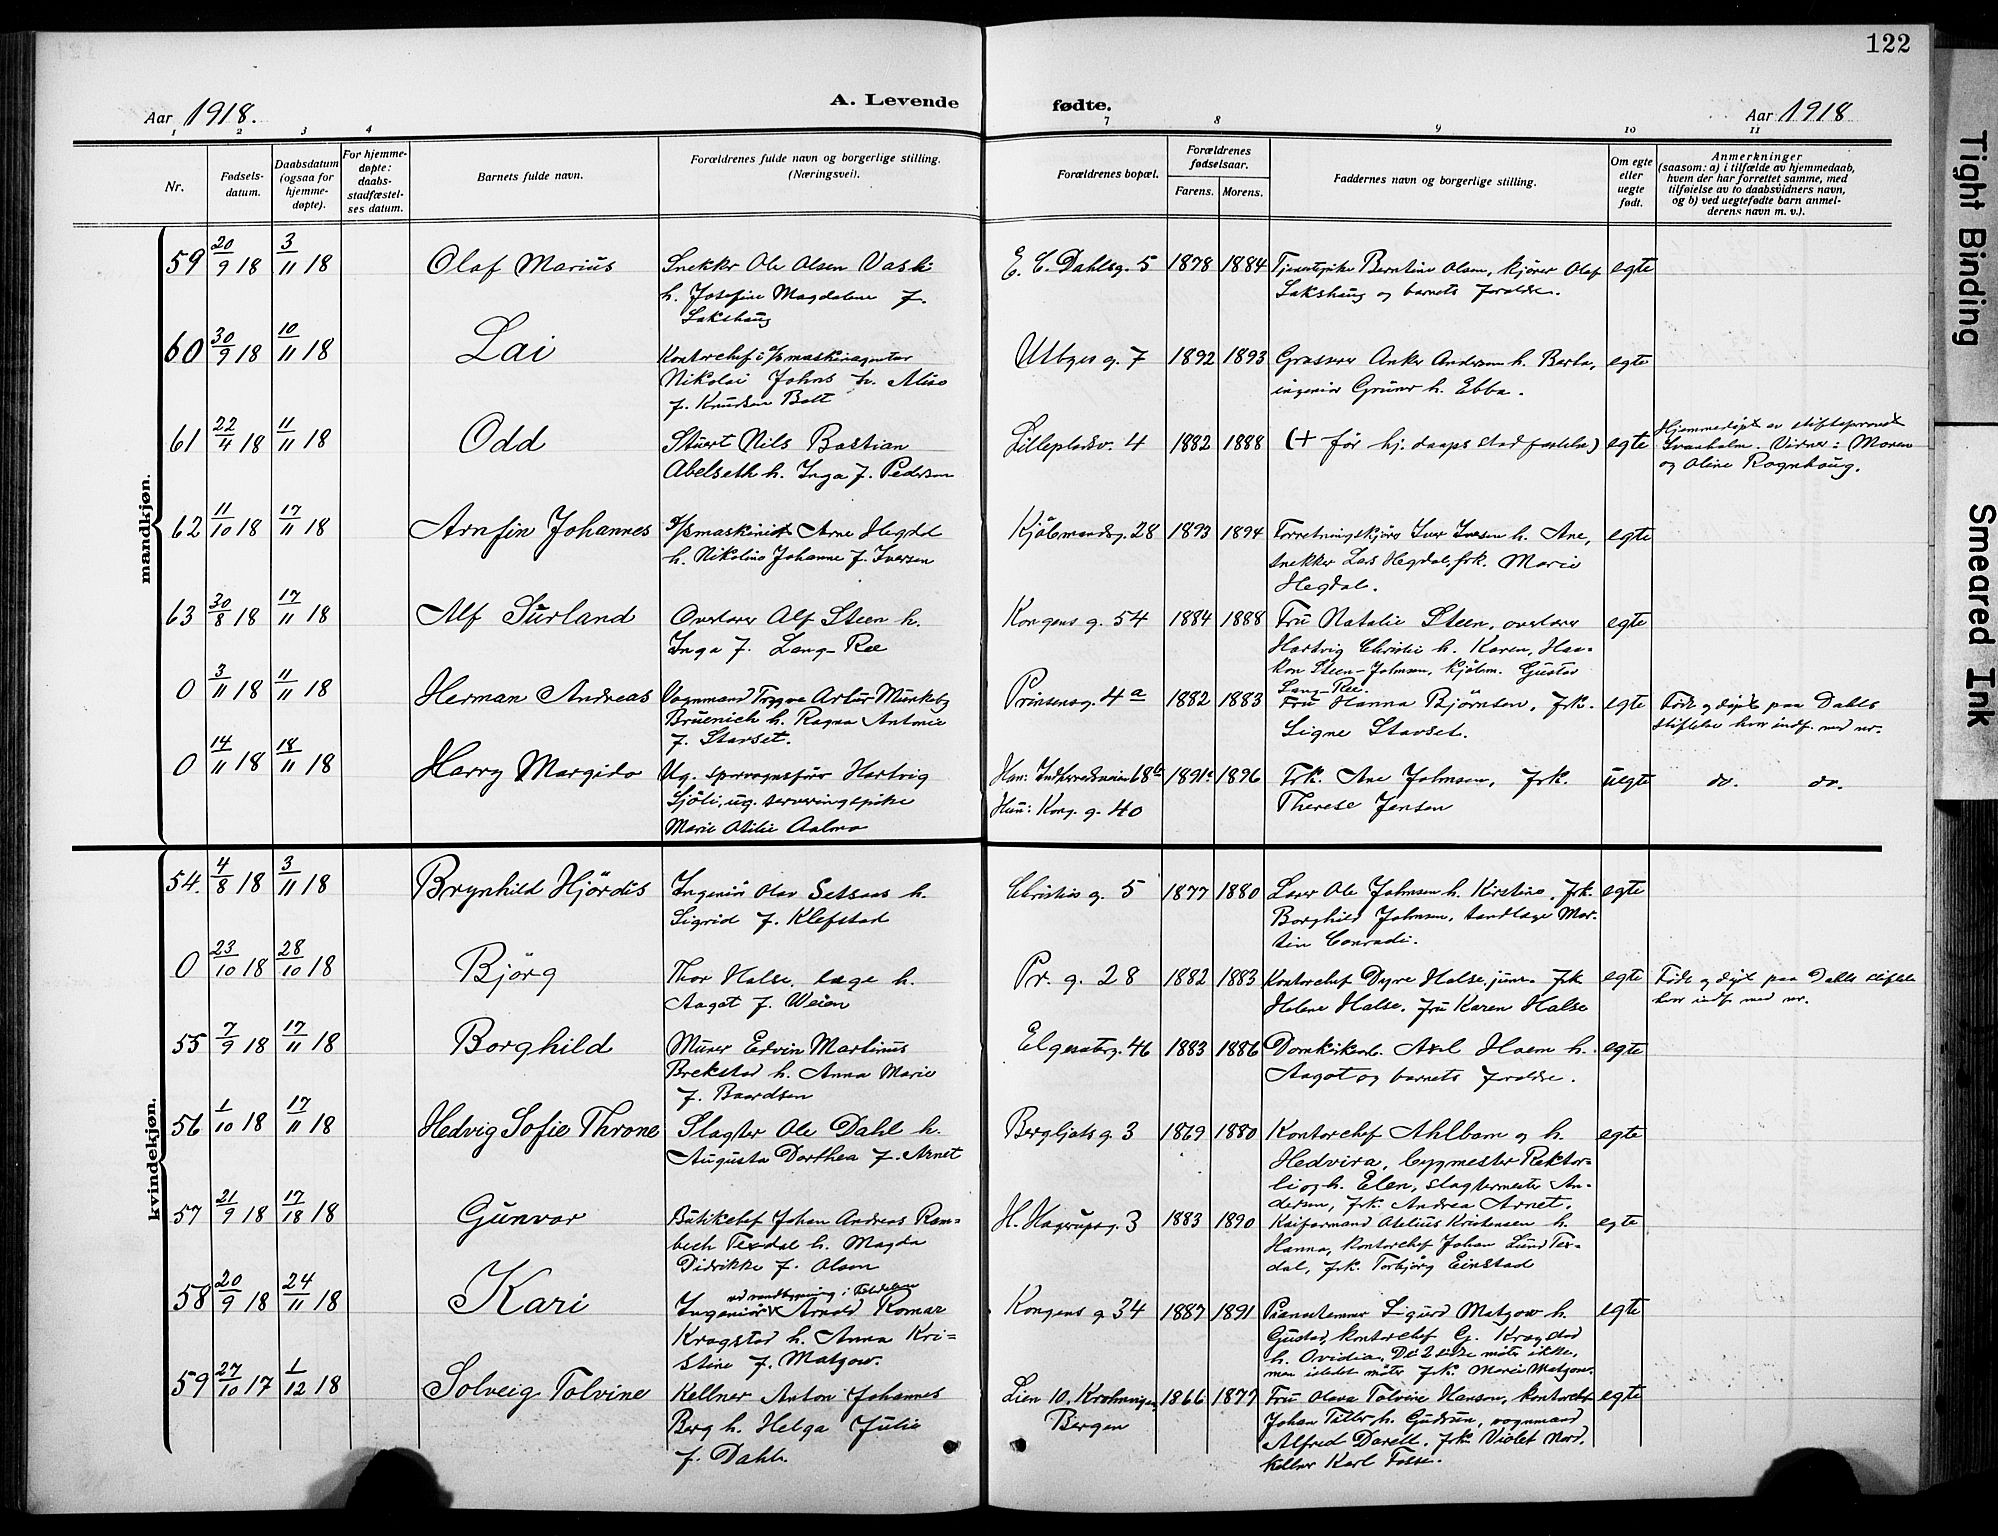 122
Aar 1918. A. Levende fødte. Aar 1918
1 2 3 4 7 8 9 10 11
Nr.
Fødsels-
datum.
Daabsdatum
(ogsaa for
hjemme-
døpte).
For hjemme-
døpte:
daabs-
stadfæstel-
ses datum.
Barnets fulde navn.
Forældrenes fulde navn og borgerlige stilling.
(Næringsvei).
Forældrenes bopæl.
Forældrenes
fødselsaar.
Farens. Morens.
Faddernes navn og borgerlige stilling.
Om egte
eller
uegte
født.
Anmerkninger
(saasom: a) i tilfælde av hjemmedaab,
hvem der har forrettet samme, med
tilføielse av to daabsvidners navn,
og b) ved uegtefødte barn anmel-
derens navn m. v.).
mandkjøn.
59 20/9 18 3/11 18 Olaf Marius
Snekker Ole Olsen
h. Josefine Magdalene f.
Lakshaug
E. C. Dahlsg. 5 1878 1884
Tjenestepike Berntine Olsen, kjører Olaf
Lakshaug og barnets foraldre.
egte
60 30/9 18 10/11 18 Lai
Kontorchef i
Nikolai Johns h.
f. Knudsen
g. 7 1892 1893
Grosserer Anker Andersen h. Berta,
ingeniør Grüner h. Ebba.
egte
61 22/4 18 11/11 18 Odd
Stuert Nils Bastian
Abelseth h. Inga f. Pedersen
Lillepladsv. 4 1882 1888
(+ før hj. daaps stadfestelse)
egte
Hjemmedøpt av stiftsprovst
Svanholm. Vidner: Moren
og Oline Rognhaug.
62 11/10 18 17/11 18 Arnfin Johannes
d/s maskinist Arne Hegdal
h. Nikoline Johanne f. Iversen
Kjøbmandsg. 28 1893 1894
Forretningskjører Iver Iversen h. Ane,
snekker Lars Hegdal, frk. Marie
Hegdal.
egte
63 30/8 18 17/11 18 Alf Surland
Overlærer Alf Steen h.
Inga f. Lang-Ree
Kongens g. 54 1884 1888
Fru Natalie Steen, overlærer
Hartvig Christie h. Karen, Haa-
kon Steen-Johnsen, kjøbm. Gustav
Lang-Ree.
egte
0 3/11 18 11/11 18 Herman Andreas
Vognmand Trygve Artur Munkeby
Bruenich h. Ragna Antonie
f. Stavset.
Prinsensg. 4a 1882 1883
Fru Hanna Bjørnsen, frk.
Signe Stavset.
egte
Født og døpt paa Dahls
stiftelse hvor indf. med nr.
0 14/11 18 18/11 18 Harry Margido
Ug. sporvognsfører Hartvig
Sjøli, ug. serveringspike
Marie Otilie Aalmo
Han: 68b
Hun: Kong. g. 40
1891 1896
Frk. Ane Johnsen, frk.
Therese Jensen
uegte
do. do.
kvindekjøn.
54. 4/8 18 3/11 18 Brynhild Hjördis
Ingeniør Olav Setsaas h.
Sigrid f. Klefstad
Christies g. 5 1877 1880
Lærer Ole Johnsen h. Kirstine, frk.
Borghild Johnsen, tandlæge Mar-
tin Conradi.
egte
0 23/10 18 28/10 18 Björg
Thor Halse, læge h.
Aagot f. Weien
Pr. g. 28 1882 1883
Kontorchef Dyre Halse, jun. frk.
Helene Halse. fru Karen Halse
egte
Født og døpt paa Dahls stiftelse
hvor indf. med nr.
55 7/9 18 17/11 18 Borghild
Murer Edvin Martinus
Brekstad h. Anna Marie
f. Baardsen
Elgesæterg. 46 1883 1886
Domkirket. Axel Haem h.
Aagot og barnets foraldre.
egte
56 1/10 18 17/11 18 Hedvig Sofie Throne
Slagter Ole Dahl h.
Augusta Dorthea f. Arnet
Bergljots g. 3 1869 1880
Kontorchef Ahlbom og h.
Hedvira, bygmester Rektor-
li og h. Elen, slagtermester An-
dersen, frk. Andrea Arnet.
egte
57 21/9 18 17/18 18 Gunvor
Butikchef Johan Andreas Ram-
bech Texdal h. Magda
Didrikke f. Olsen
H. Hagerupsg. 3 1883 1890
Kaiformand Otelius Kristensen h.
Hanna, kontorchef Johan Lund Tex-
dal, frk. Torbjørg Einstad
egte
58 20/9 18 24/11 18 Kari
ved vandbygning i Folldalen
Ingeniør x Arnold Romar
Kragstad h. Anna Kri-
stine f. Matzow.
Kongens g 34 1887 1891
Pianostemmer Sigurd Matzow h.
Gustava, kontorchef G. Kragstad
h. Ovidia. De 2 sidste møtte ikke,
men istedet møter frk. Marie Matzow.
egte
59 27/10 17 1/12 18 Solveig Tolvine
Kellner Anton Johannes
Berg h. Helga Julie
f. Dahl.
Lien 10,
Bergen
1866 1877
Fru Olava Tolvine Hansen, kontorchef
Johan Tiller h. Gudrun, vognmand
Alfred Dorell. frk. Violet Nord,
kellner Karl
egte
Tight Binding
Smeared Ink